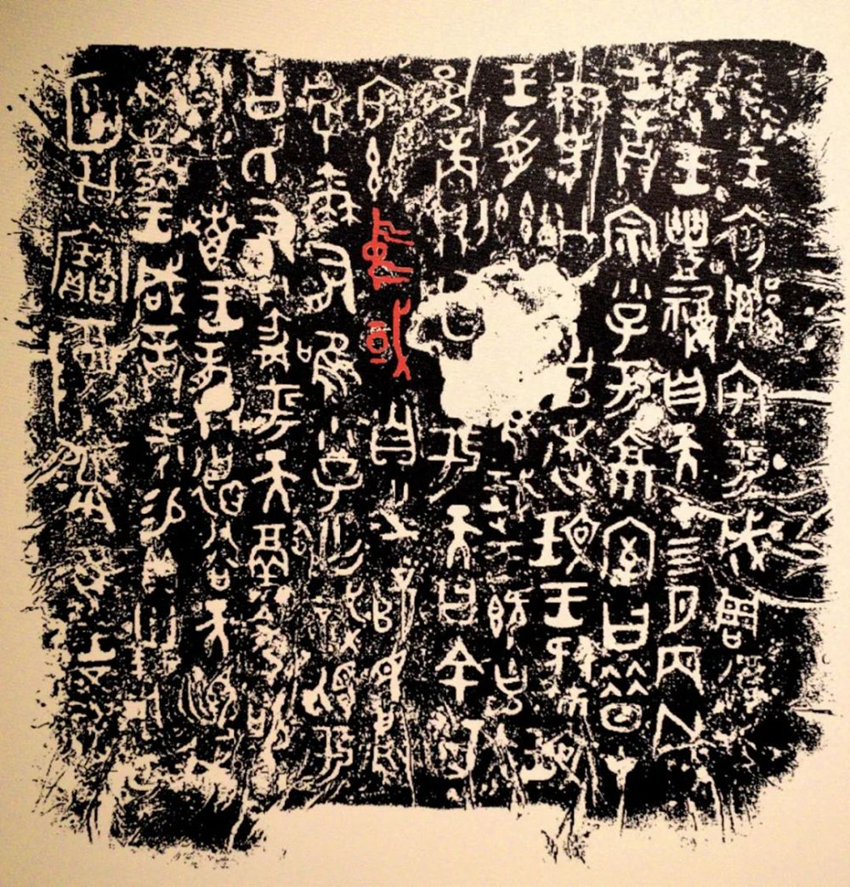 隹王初遷宅于成周復禀
珷王豊祼自天才四月丙戌
王誥宗小子于京室曰昔才
爾考公氏克逨玟王肆玟
王受茲大令隹珷王既克大
邑商則廷告于天曰余其
宅茲中或自之乂民烏
虖爾有唯小子亡識視于
公氏有爵于天徹令敬
享哉叀王恭德谷天訓我
不敏王咸誥何易貝卅朋用乍
庾公寶尊彝隹王五祀